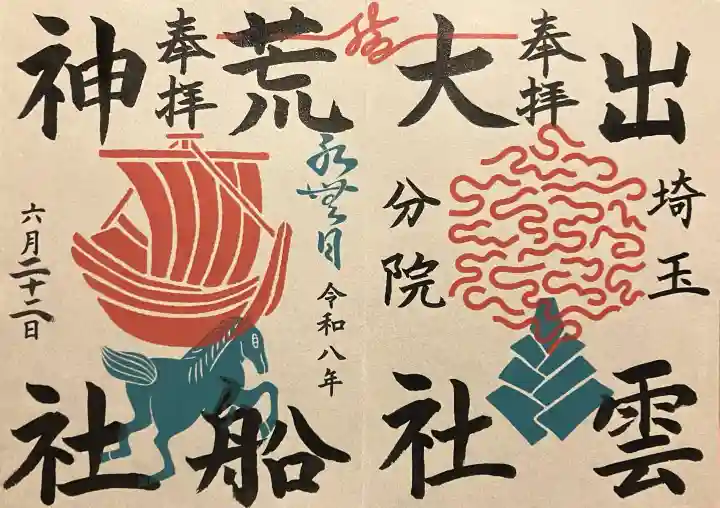 出雲
埼玉
奉拝
大社
分院
荒船
令和八年
水無月
奉拝
神社
六月二十二日